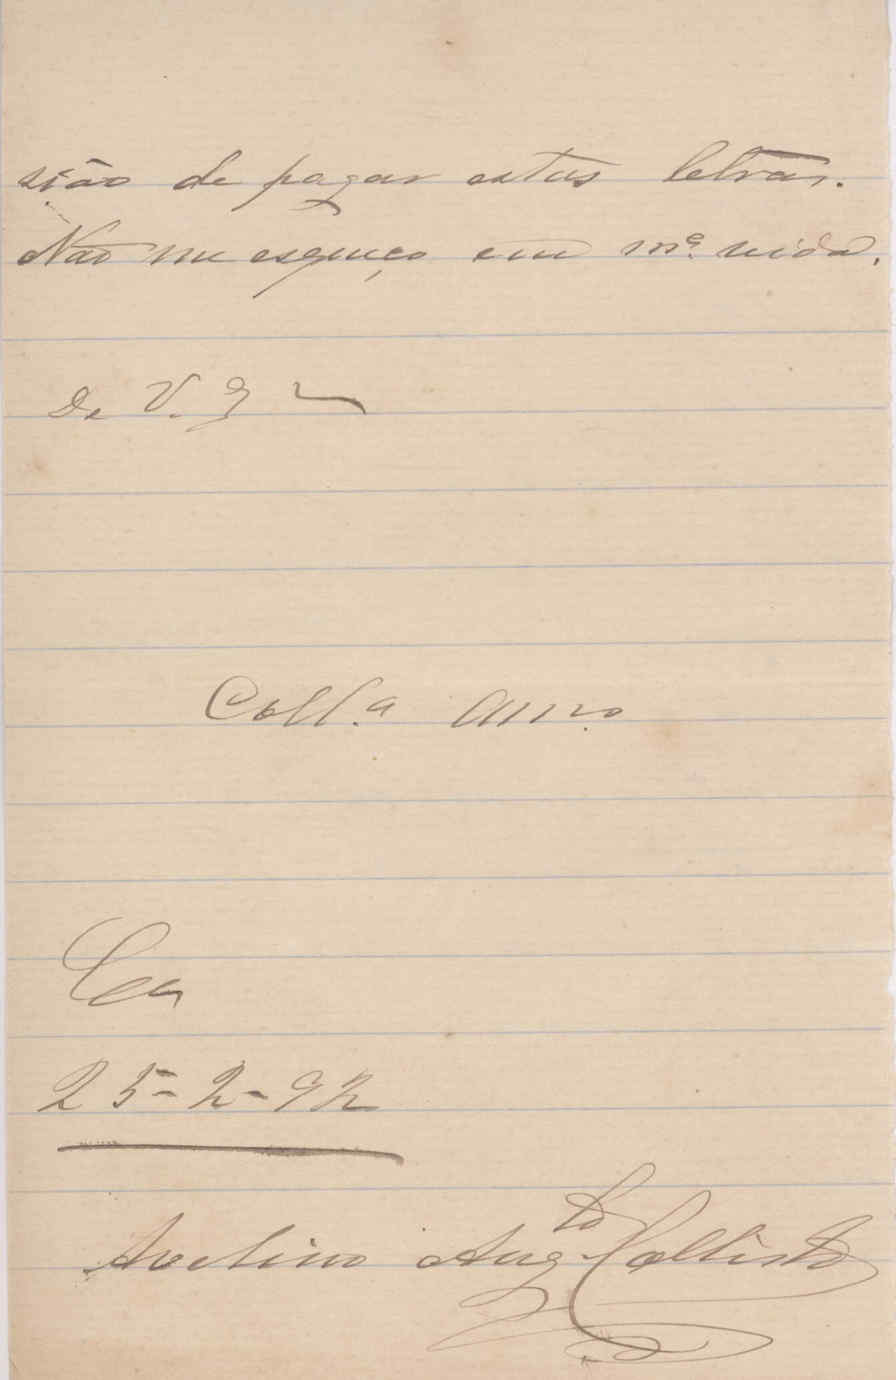 sião de pagar estas letras.
Não me esqueço em mª. vida.
De V. Eª
Coll.ª amº
Cea
25-2-92
Avelino Aug.to Callisto